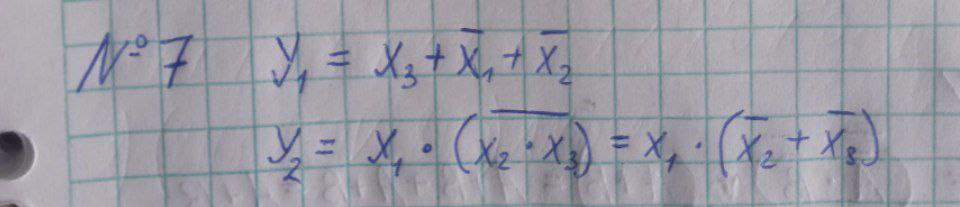 №7 y₁ = x₃ + x̅₁ + x̅₂
y₂ = x₁ · (x̅₂̅ ̅·̅ ̅x̅₃) = x₁ · (x̅₂ + x̅₃)